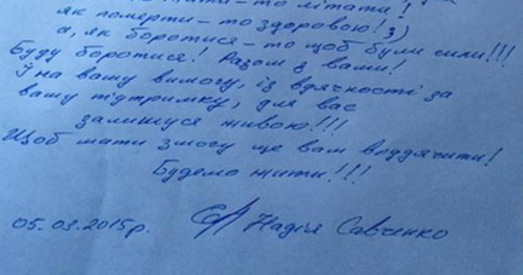 жити - то літати!
як померти - то здоровою! :)
а, як боротися - то щоб були сили!!!
Буду боротися! Разом з вами!
Й на вашу вимогу, із вдячності за
вашу підтримку, для вас
залишуся живою!!!
Щоб мати змогу ще вам віддячити!
Будемо жити!!!
05.03.2015р. Надія Савченко